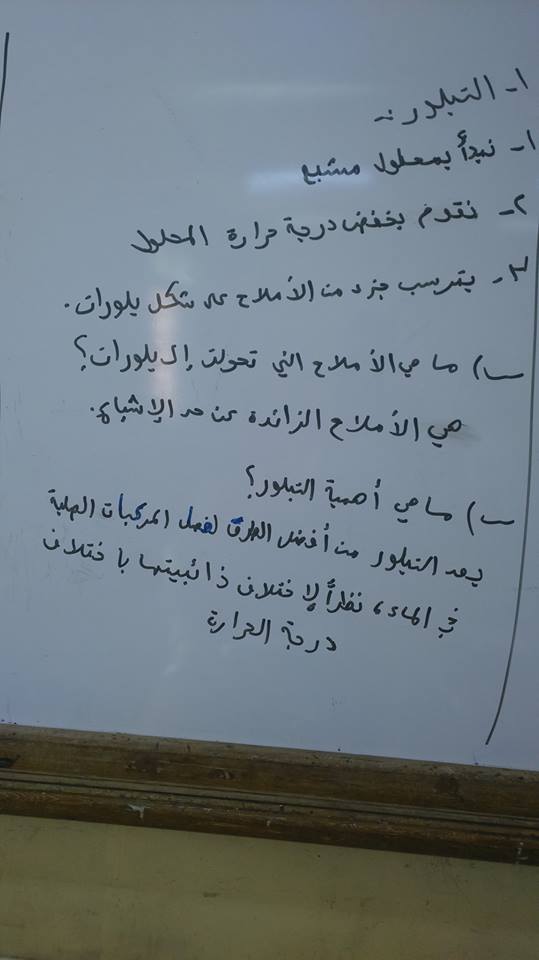 ١- التبلور :-
١- نبدأ بمحلول مشبع
٢- نقوم بخفض درجة حرارة المحلول
٣- يترسب جزء من الأملاح على شكل بلورات.
س) ما هي الأملاح التي تحولت إلى بلورات؟
هي الأملاح الزائدة عن حد الإشباع.
س) ما هي أهمية التبلور؟
يعد التبلور من أفضل الطرق لفصل المركبات الصلبة
في الماء، نظراً لإختلاف ذائبيتها باختلاف
درجة الحرارة